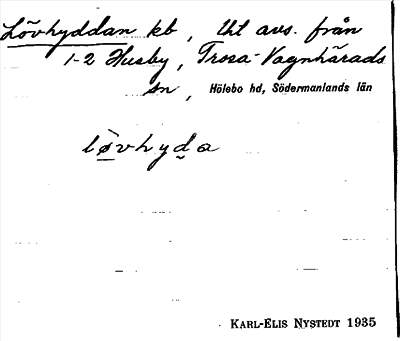 Lövhyddan kb, tht avs. från
1-2 Husby, Trosa-Vagnhärads
sn, Hölebo hd, Södermanlands län
lø̀vhyḍa
KARL-ELIS NYSTEDT 1935